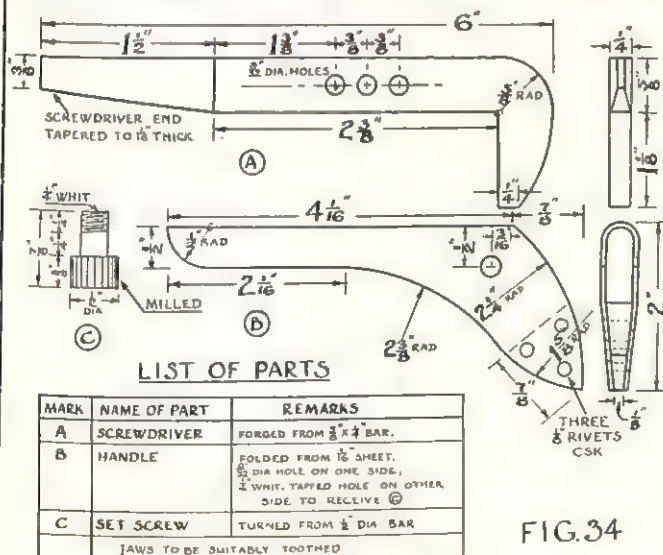 6"
1 1/2" 1 3/8" 3/8" 3/8" 1/4"
3/8" DIA. HOLES
5/8" RAD 5/8"
SCREWDRIVER END
TAPERED TO 1/16" THICK
2 3/8" 1 1/8"
A
1/4"
1/4" WHIT
4 1/16" 7/8"
1/2" 1/2" RAD 1/2" 3/16"
1/2" DIA
MILLED
C
2 1/16" 2 1/4" RAD 2"
B
2 3/8" RAD 1 5/8" RAD
7/8" 1/8"
THREE
1/8" RIVETS
CSK
LIST OF PARTS
MARK NAME OF PART REMARKS
A SCREWDRIVER FORGED FROM BAR.
B HANDLE FOLDED FROM 1/16" SHEET.
DIA HOLE ON ONE SIDE,
WHIT. TAPPED HOLE ON OTHER
SIDE TO RECEIVE C
C SET SCREW TURNED FROM 1/2" DIA BAR
JAWS TO BE SUITABLY TOOTHED
FIG.34